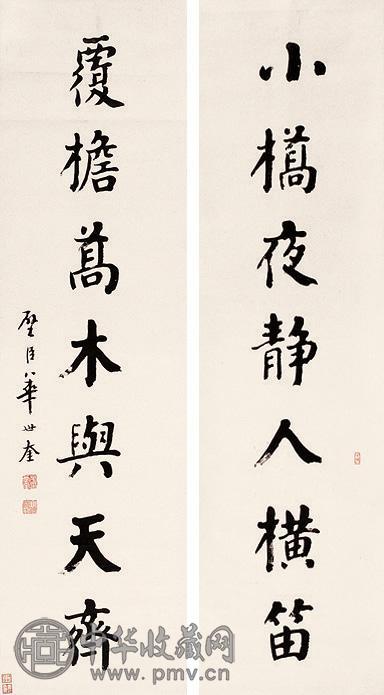 小橋夜靜人橫笛
覆檐高木與天齊
壁臣華世奎
中华收藏网
www.pmv.cn